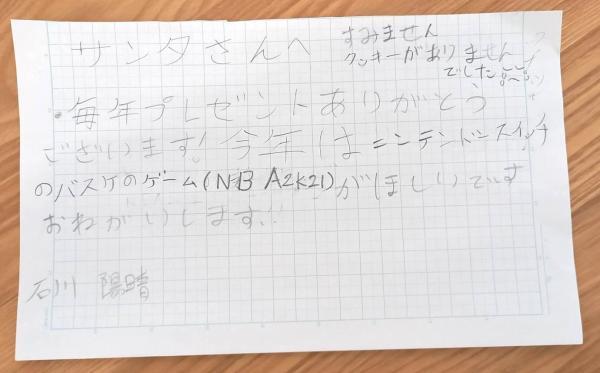 サンタさんへ
すみません
クッキーがありません
でした
・毎年プレゼントありがとう
ございます！今年はニンテンドースイッチ
のバスケのゲーム(NBA2K21)がほしいです
おねがいします！
石川 陽晴